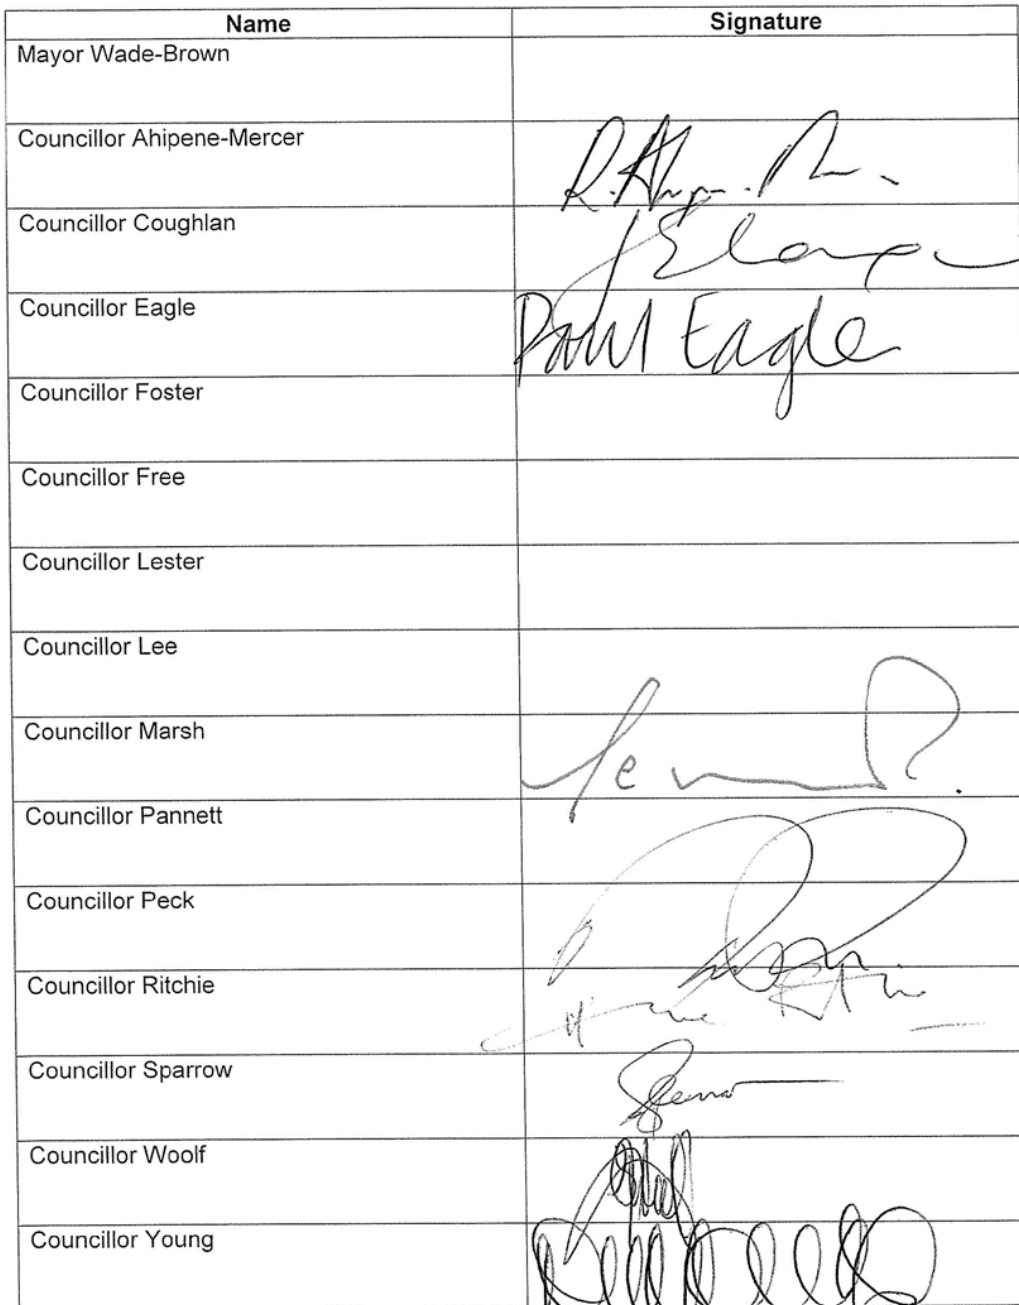 Name Signature
Mayor Wade-Brown
Councillor Ahipene-Mercer
Councillor Coughlan
Councillor Eagle Paul Eagle
Councillor Foster
Councillor Free
Councillor Lester
Councillor Lee
Councillor Marsh
Councillor Pannett
Councillor Peck
Councillor Ritchie
Councillor Sparrow
Councillor Woolf
Councillor Young